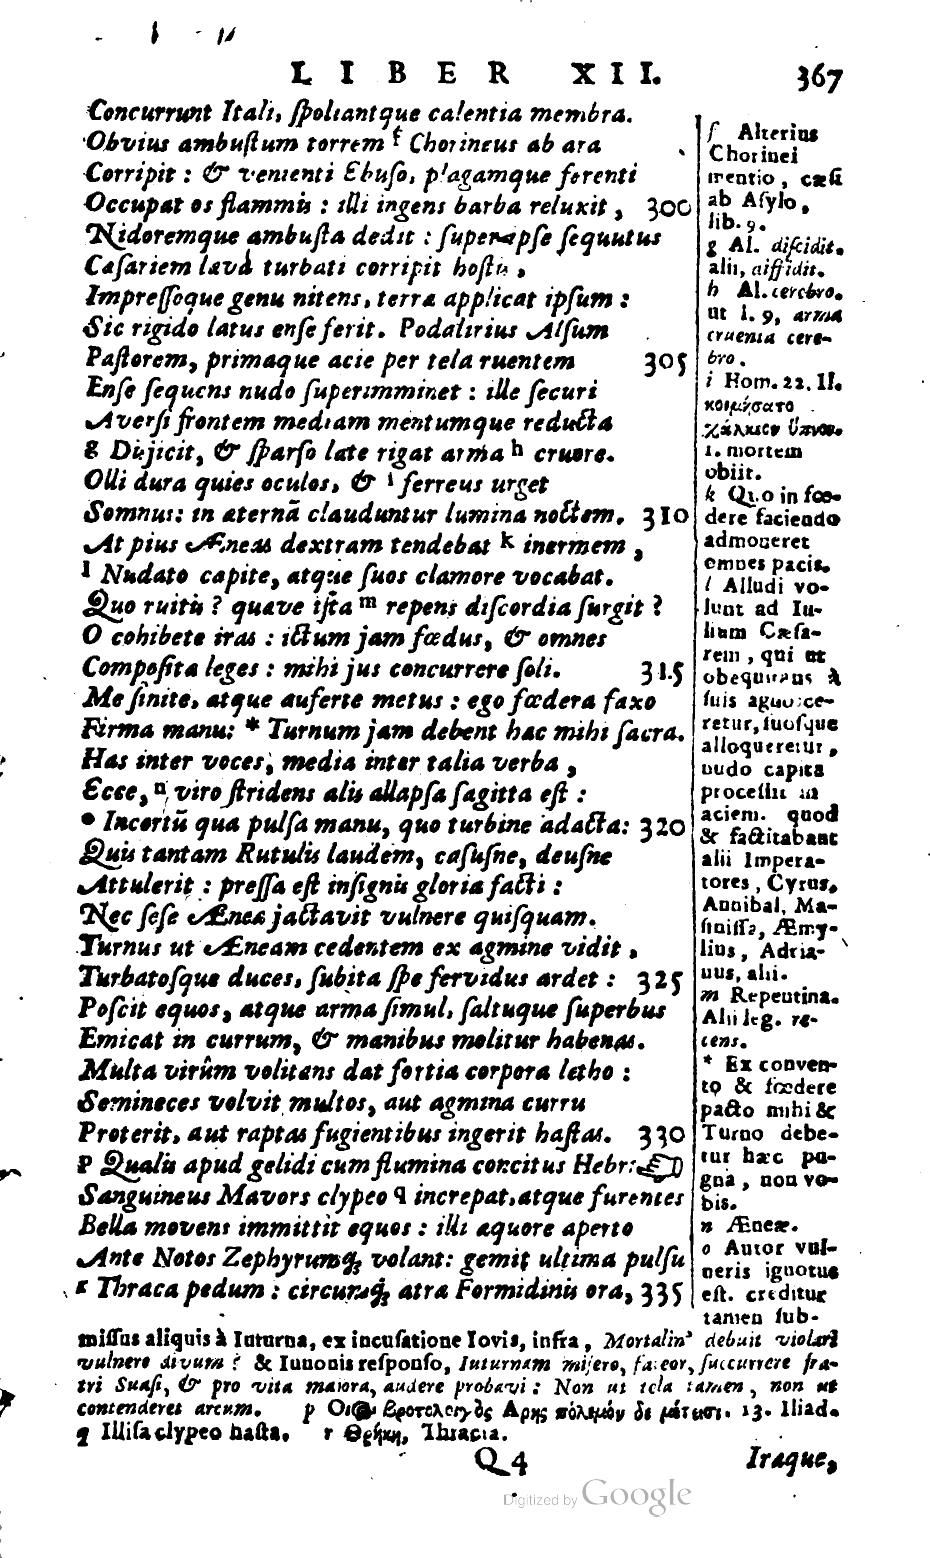 LIBER XII. 367
Concurrunt Itali, ſpoliantque calentia membra.
Obvius ambuſtum torrem ſ Chorineus ab ara
Corripit : & venienti Ebuſo, plagamque ferenti
Occupat os flammis : illi ingens barba reluxit , 300
Nidoremque ambuſta dedit : ſuper ipſe ſequutus
Caſariem lævâ turbati corripit hoſtis ,
Impreſſoque genu nitens, terra applicat ipſum :
Sic rigido latus enſe ferit. Podalirius Alſum
Paſtorem, primaque acie per tela ruentem 305
Enſe ſequens nudo ſuperimminet : ille ſecuri
Averſi frontem mediam mentumque reducta
g Disjicit, & ſparſo late rigat arma h cruore.
Olli dura quies oculos, & i ferreus urget
Somnus: in æternã clauduntur lumina noctem. 310
At pius Æneas dextram tendebat k inermem ,
l Nudato capite, atque ſuos clamore vocabat.
Quo ruitis ? quave iſta m repens diſcordia ſurgit ?
O cohibete iras : ictum jam fœdus, & omnes
Compoſita leges : mihi jus concurrere ſoli. 315
Me ſinite, atque auferte metus : ego fœdera faxo
Firma manu: * Turnum jam debent hac mihi ſacra.
Has inter voces, media inter talia verba ,
Ecce, n viro ſtridens alis allapſa ſagitta eſt :
o Incertũ qua pulſa manu, quo turbine adacta: 320
Quis tantam Rutulis laudem, caſuſne, deuſne
Attulerit : preſſa eſt inſignis gloria facti :
Nec ſeſe Æneæ jactavit vulnere quiſquam.
Turnus ut Æneam cedentem ex agmine vidit ,
Turbatoſque duces, ſubita ſpe fervidus ardet : 325
Poſcit equos, atque arma ſimul, ſaltuque ſuperbus
Emicat in currum, & manibus molitur habenas.
Multa virûm volitans dat fortia corpora letho :
Semineces volvit multos, aut agmina curru
Proterit, aut raptas fugientibus ingerit haſtas. 330
p Qualis apud gelidi cum flumina concitus Hebri
Sanguineus Mavors clypeo q increpat, atque furentes
Bella movens immittit equos : illi æquore aperto
Ante Notos Zephyrumq; volant: gemit ultima pulſu
r Thraca pedum : circumq; atra Formidinis ora, 335
ſ Alterius
Chorinei
mentio , cæſi
ab Aſylo ,
lib. 9.
g Al. diſcidit.
alii, diffidit.
h Al. cerebro.
ut l. 9, arma
cruenta cere-
bro.
i Hom. 22. Il.
κοιμήσατο
χάλκεον ὕπνον.
i. mortem
obiit.
k Quo in fœ-
dere faciendo
admoneret
omnes pacis.
l Alludi vo-
lunt ad Iu-
lium Cæſa-
rem , qui ut
obequitans à
ſuis agnoſce-
retur, ſuoſque
alloqueretur ,
nudo capite
proceſſit in
aciem. quod
& factitabant
alii Impera-
tores , Cyrus,
Annibal, Ma-
ſiniſſa, Æmy-
lius , Adria-
nus, alii.
m Repentina.
Alii leg. re-
cens.
* Ex conven-
to & fœdere
pacto mihi &
Turno debe-
tur hæc pu-
gna , non vo-
bis.
n Æneæ.
o Autor vul-
neris ignotus
eſt. creditur
tamen ſub-
miſſus aliquis à Iuturna, ex incuſatione Iovis, infra, Mortalin' debuit violari
vulnere divum ? & Iunonis reſponſo, Iuturnam miſero, fateor, ſuccurrere fra-
tri Suaſi, & pro vita maiora, audere probavi : Non ut tela tamen , non ut
contenderet arcum. p Οἷος βροτολοιγὸς Ἄρης πόλεμόν δε μέτεισι. 13. Iliad.
q Illiſa clypeo haſta. r Θρῄκη, Thracia.
Q 4 Iraque,
Digitized by Google